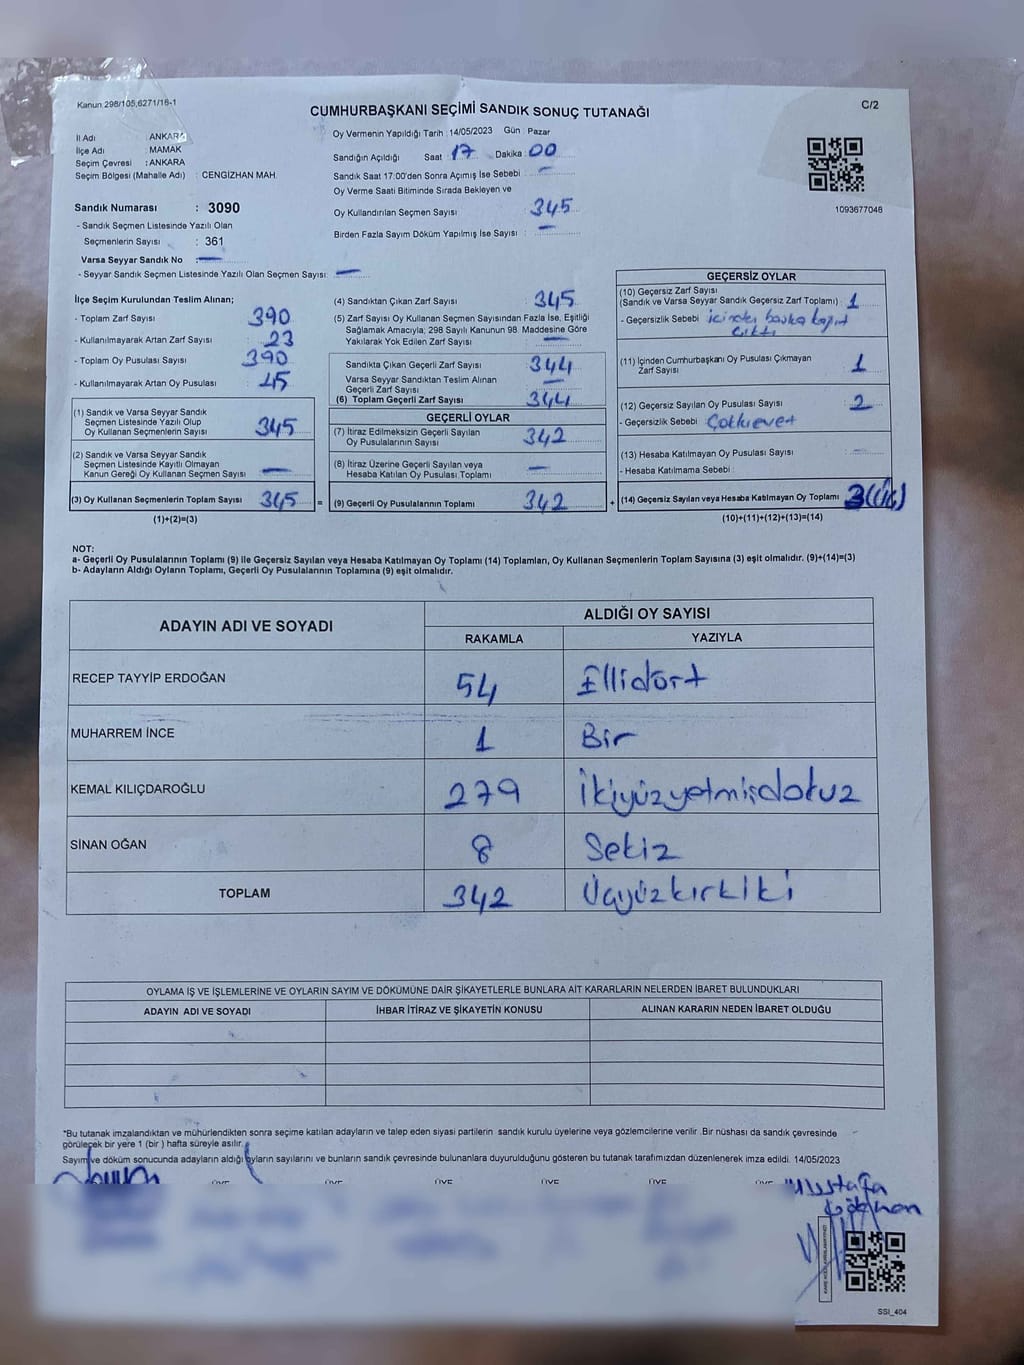 Kanun 298/105,6271/16-1
CUMHURBAŞKANI SEÇİMİ SANDIK SONUÇ TUTANAĞI
C/2
İl Adı : ANKARA
İlçe Adı : MAMAK
Seçim Çevresi : ANKARA
Seçim Bölgesi (Mahalle Adı) : CENGİZHAN MAH.
Oy Vermenin Yapıldığı Tarih : 14/05/2023 Gün : Pazar
Sandığın Açıldığı Saat : 17 Dakika : 00
Sandık Saat 17:00'den Sonra Açımış İse Sebebi : —
Oy Verme Saati Bitiminde Sırada Bekleyen ve
Oy Kullandırılan Seçmen Sayısı : 345
Birden Fazla Sayım Döküm Yapılmış İse Sayısı : —
1093677046
Sandık Numarası : 3090
- Sandık Seçmen Listesinde Yazılı Olan
Seçmenlerin Sayısı : 361
Varsa Seyyar Sandık No : —
- Seyyar Sandık Seçmen Listesinde Yazılı Olan Seçmen Sayısı: —
İlçe Seçim Kurulundan Teslim Alınan;
- Toplam Zarf Sayısı 390
- Kullanılmayarak Artan Zarf Sayısı : 23
- Toplam Oy Pusulası Sayısı : 390
- Kullanılmayarak Artan Oy Pusulası : 45
(1) Sandık ve Varsa Seyyar Sandık
Seçmen Listesinde Yazılı Olup
Oy Kullanan Seçmenlerin Sayısı : 345
(2) Sandık ve Varsa Seyyar Sandık
Seçmen Listesinde Kayıtlı Olmayan
Kanun Gereği Oy Kullanan Seçmen Sayısı : —
(3) Oy Kullanan Seçmenlerin Toplam Sayısı : 345 =
(1)+(2)=(3)
(4) Sandıktan Çıkan Zarf Sayısı : 345
(5) Zarf Sayısı Oy Kullanan Seçmen Sayısından Fazla İse, Eşitliği
Sağlamak Amacıyla; 298 Sayılı Kanunun 98. Maddesine Göre
Yakılarak Yok Edilen Zarf Sayısı : —
Sandıkta Çıkan Geçerli Zarf Sayısı : 344
Varsa Seyyar Sandıktan Teslim Alınan
Geçerli Zarf Sayısı : —
(6) Toplam Geçerli Zarf Sayısı : 344
GEÇERLİ OYLAR
(7) İtiraz Edilmeksizin Geçerli Sayılan
Oy Pusulalarının Sayısı : 342
(8) İtiraz Üzerine Geçerli Sayılan veya
Hesaba Katılan Oy Pusulası Toplamı : —
(9) Geçerli Oy Pusulalarının Toplamı : 342 +
GEÇERSİZ OYLAR
(10) Geçersiz Zarf Sayısı
(Sandık ve Varsa Seyyar Sandık Geçersiz Zarf Toplamı) : 1
- Geçersizlik Sebebi : içinden başka kağıt
çıktı
(11) İçinden Cumhurbaşkanı Oy Pusulası Çıkmayan
Zarf Sayısı : 1
(12) Geçersiz Sayılan Oy Pusulası Sayısı : 2
- Geçersizlik Sebebi : Çokluevet
(13) Hesaba Katılmayan Oy Pusulası Sayısı : —
- Hesaba Katılmama Sebebi :
(14) Geçersiz Sayılan veya Hesaba Katılmayan Oy Toplamı : 3(Üç)
(10)+(11)+(12)+(13)=(14)
NOT:
a- Geçerli Oy Pusulalarının Toplamı (9) ile Geçersiz Sayılan veya Hesaba Katılmayan Oy Toplamı (14) Toplamları, Oy Kullanan Seçmenlerin Toplam Sayısına (3) eşit olmalıdır. (9)+(14)=(3)
b- Adayların Aldığı Oyların Toplamı, Geçerli Oy Pusulalarının Toplamına (9) eşit olmalıdır.
ADAYIN ADI VE SOYADI
ALDIĞI OY SAYISI
RAKAMLA YAZIYLA
RECEP TAYYİP ERDOĞAN 54 Ellidört
MUHARREM İNCE 1 Bir
KEMAL KILIÇDAROĞLU 279 İkiyüzyetmişdokuz
SİNAN OĞAN 8 Sekiz
TOPLAM 342 Üçyüzkırkiki
OYLAMA İŞ VE İŞLEMLERİNE VE OYLARIN SAYIM VE DÖKÜMÜNE DAİR ŞİKAYETLERLE BUNLARA AİT KARARLARIN NELERDEN İBARET BULUNDUKLARI
ADAYIN ADI VE SOYADI İHBAR İTİRAZ VE ŞİKAYETİN KONUSU ALINAN KARARIN NEDEN İBARET OLDUĞU
*Bu tutanak imzalandıktan ve mühürlendikten sonra seçime katılan adayların ve talep eden siyasi partilerin sandık kurulu üyelerine veya gözlemcilerine verilir .Bir nüshası da sandık çevresinde
görülecek bir yere 1 (bir ) hafta süreyle asılır.
Sayım ve döküm sonucunda adayların aldığı oyların sayılarını ve bunların sandık çevresinde bulunanlara duyurulduğunu gösteren bu tutanak tarafımızdan düzenlenerek imza edildi. 14/05/2023
ÜYE ÜYE ÜYE ÜYE ÜYE ÜYE
Mustafa
Gökhan
SSI_404